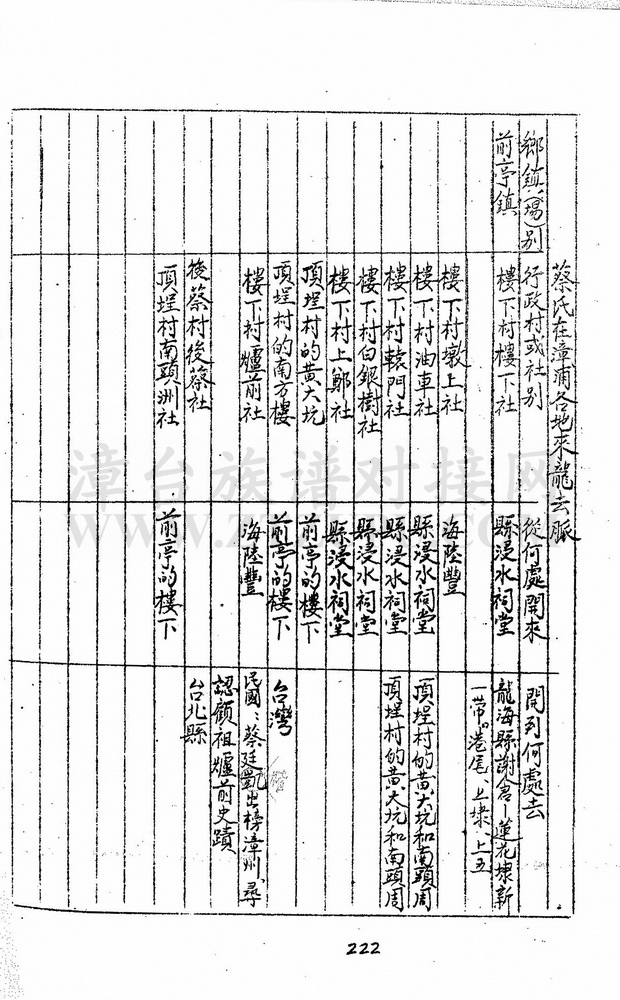 蔡氏在漳浦各地來龍去脈
鄉鎮(場)別
行政村或社別
從何處開來
開到何處去
前亭鎮
樓下村樓下社
縣浸水祠堂
龍海縣謝倉—蓮花埭新
一帶。港尾、上埭、上五
樓下村墩上社
海陸豐
樓下村油車社
縣浸水祠堂
頂埕村的黃大坑和南頭周
樓下村轅門社
縣浸水祠堂
頂埕村的黃大坑和南頭周
樓下村白銀樹社
縣浸水祠堂
樓下村上鄭社
縣浸水祠堂
頂埕村的黃大坑
前亭的樓下
頂埕村的南方樓
前亭的樓下
台灣
樓下村爐前社
海陸豐
民國:蔡廷凱出榜漳州、尋
認顧祖爐前史蹟
後蔡村後蔡社
台北縣
頂埕村南頭洲社
前亭的樓下
漳台族谱对接网
222